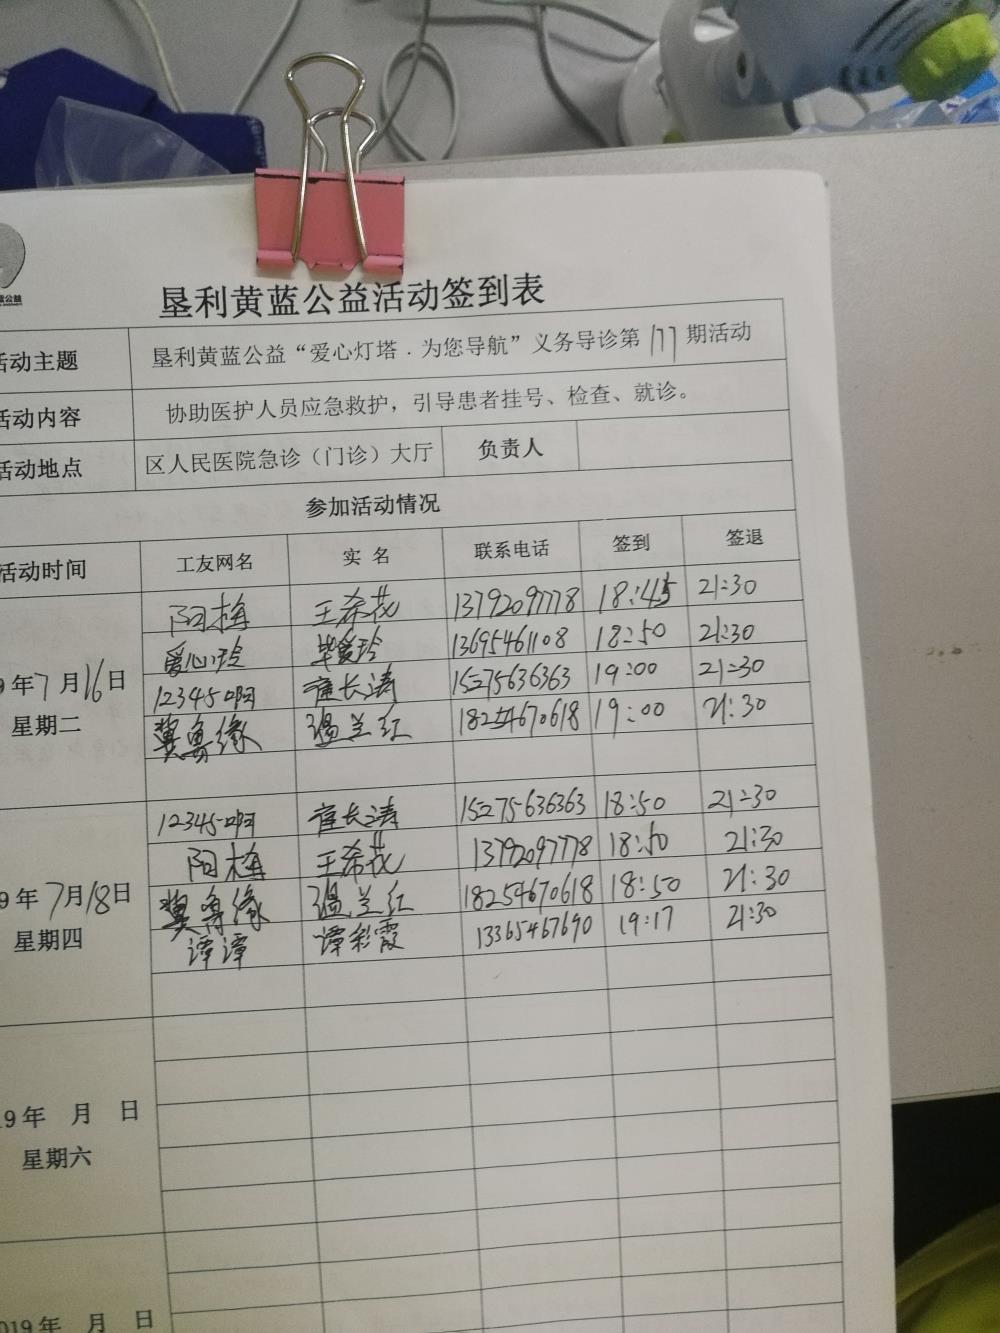 垦利黄蓝公益活动签到表
活动主题 垦利黄蓝公益“爱心灯塔．为您导航”义务导诊第177期活动
活动内容 协助医护人员应急救护，引导患者挂号、检查、就诊。
活动地点 区人民医院急诊（门诊）大厅 负责人
参加活动情况
活动时间 工友网名 实 名 联系电话 签到 签退
9年7月16日
星期二
阳梅 王希花 13792097778 18:45 21:30
爱心玲 毕爱玲 13695461108 18:50 21:30
12345啊 崔长涛 15275636363 19:00 21:30
冀鲁缘 温兰红 18254670618 19:00 21:30
9年7月18日
星期四
12345啊 崔长涛 15275636363 18:50 21:30
阳梅 王希花 13792097778 18:50 21:30
冀鲁缘 温兰红 18254670618 18:50 21:30
谭谭 谭彩霞 13365467690 19:17 21:30
19年 月 日
星期六
019年 月 日